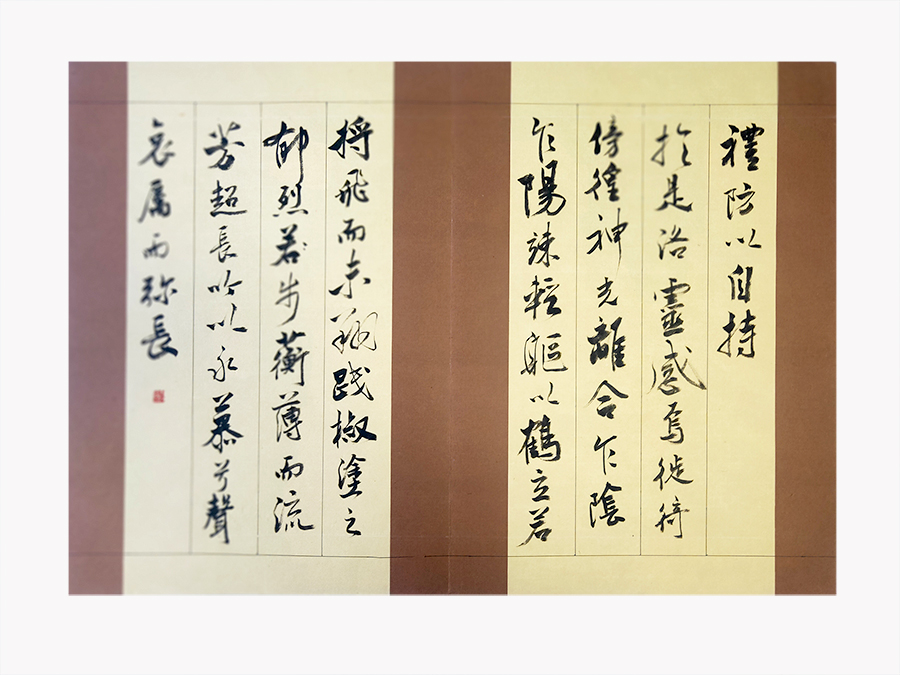 禮防以自持
扵是洛靈感焉徙徛
傍徨神光離合乍陰
乍陽竦輕軀以鶴立若
將飛而未翔踐椒塗之
郁烈若步蘅薄而流
芳超長吟以永慕兮聲
哀厲而彌長